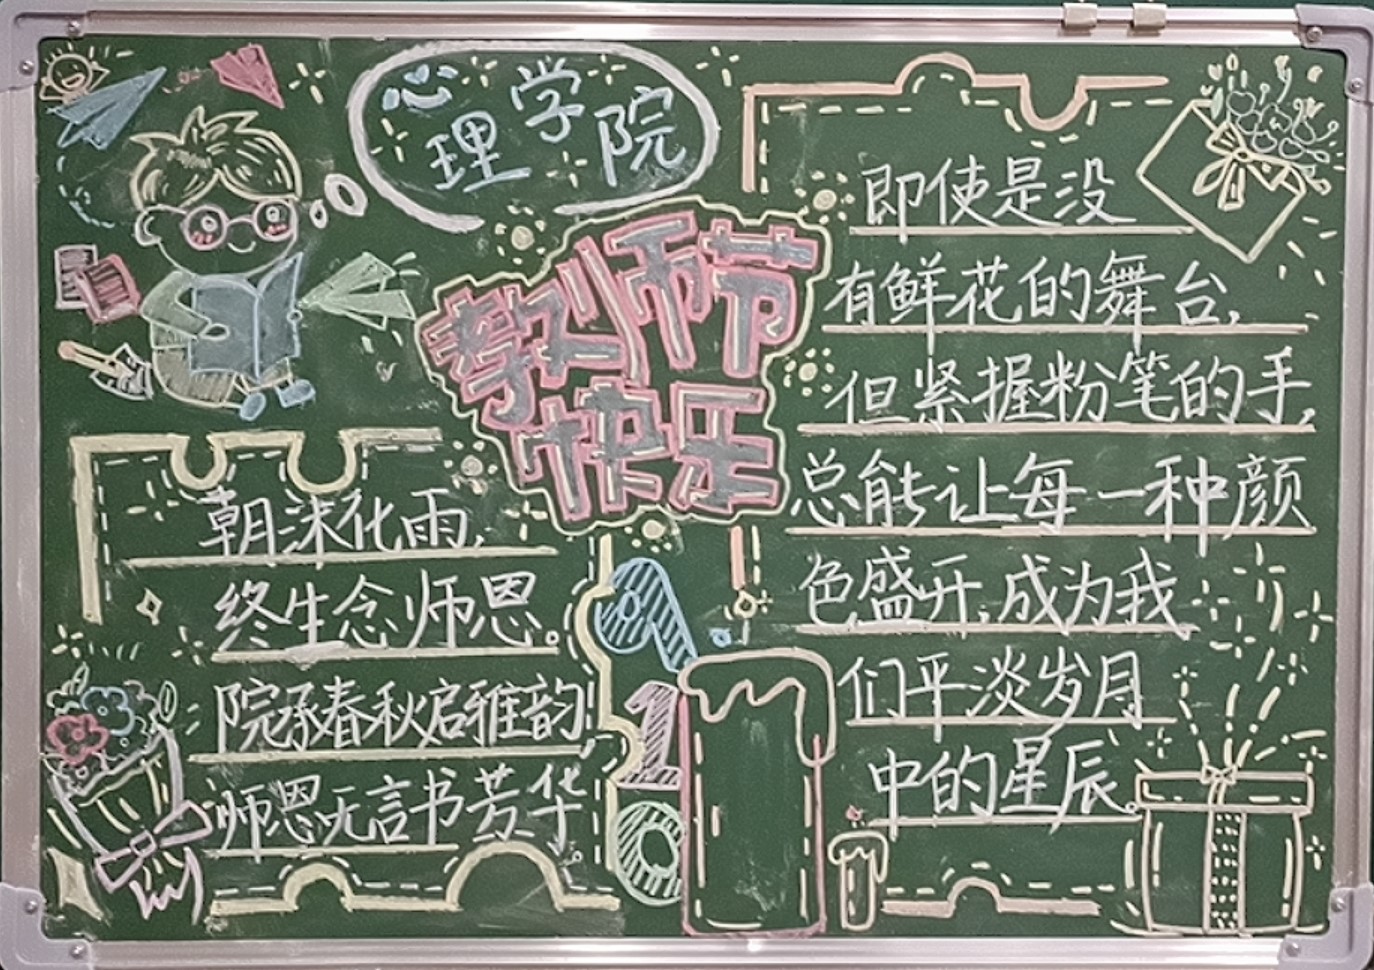 心理学院
教师节
快乐
朝沫化雨,
终生念师恩。
院承春秋启雅韵
师恩无言书芳华。
910
即使是没
有鲜花的舞台,
但紧握粉笔的手,
总能让每一种颜
色盛开,成为我
们平淡岁月
中的星辰。